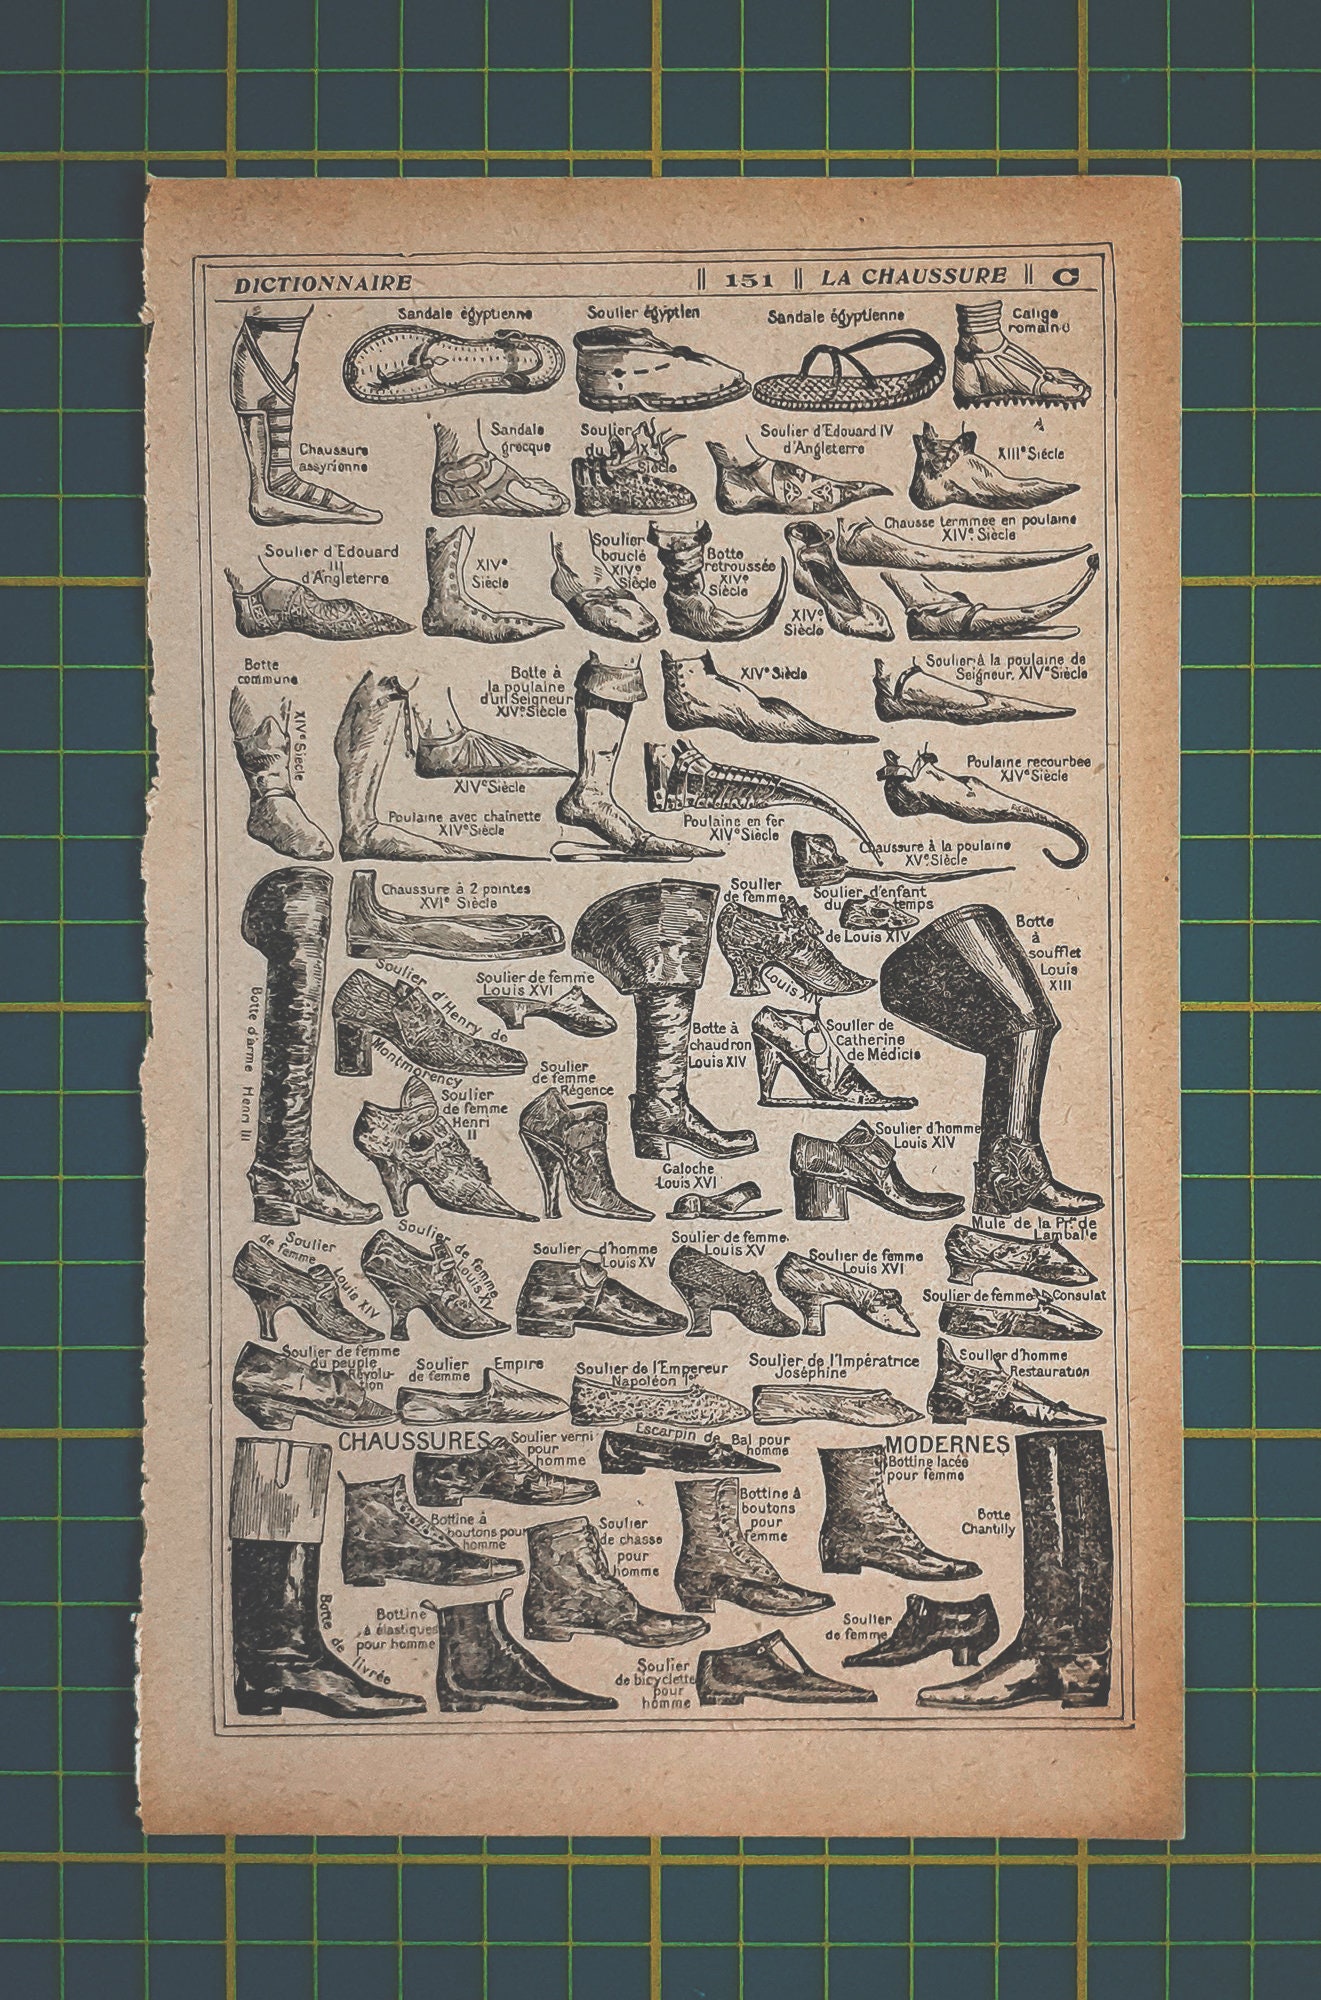 DICTIONNAIRE || 151 || LA CHAUSSURE || C
Sandale égyptienne
Soulier égyptien
Sandale égyptienne
Calige
romaine
Chaussure
assyrienne
Sandale
grecque
Soulier
du IXe
Siècle
Soulier d'Edouard IV
d'Angleterre
XIIIe Siècle
Soulier d'Edouard
III
d'Angleterre
XIVe
Siècle
Soulier
bouclé
XIVe
Siècle
Botte
retroussée
XIVe
Siècle
XIVe
Siècle
Chausse termmée en poulaine
XIVe Siècle
Botte
commune
XIVe Siècle
XIVe Siècle
Poulaine avec chaînette
XIVe Siècle
Botte à
la poulaine
d'un Seigneur
XIVe Siècle
XIVe Siècle
Soulier à la poulaine de
Seigneur. XIVe Siècle
Poulaine en fer
XIVe Siècle
Poulaine recourbée
XIVe Siècle
Chaussure à la poulaine
XVe Siècle
Botte d'arme Henri III
Chaussure à 2 pointes
XVIe Siècle
Soulier d'Henry de
Montmorency
Soulier de femme
Louis XVI
Botte à
chaudron
Louis XIV
Soulier
de femme
Louis XIV
Soulier d'enfant
du temps
de Louis XIV
Botte
à
soufflet
Louis
XIII
Soulier de
Catherine
de Médicis
Soulier
de femme
Henri
II
Soulier
de femme
Régence
Galoche
Louis XVI
Soulier d'homme
Louis XIV
Mule de la Pr.sse de
Lamballe
Soulier
de femme
Louis XIV
Soulier de femme
Louis XV
Soulier d'homme
Louis XV
Soulier de femme
Louis XV
Soulier de femme
Louis XVI
Soulier de femme Consulat
Soulier de femme
du peuple
Révolu-
tion
Soulier Empire
de femme
Soulier de l'Empereur
Napoléon Ier
Soulier de l'Impératrice
Joséphine
Soulier d'homme
Restauration
CHAUSSURES MODERNES
Botte de livrée
Soulier verni
pour
homme
Escarpin de Bal pour
homme
Bottine lacée
pour femme
Bottine à
boutons pour
homme
Soulier
de chasse
pour
homme
Bottine à
boutons
pour
femme
Botte
Chantilly
Bottine
à élastiques
pour homme
Soulier
de bicyclette
pour
homme
Soulier
de femme